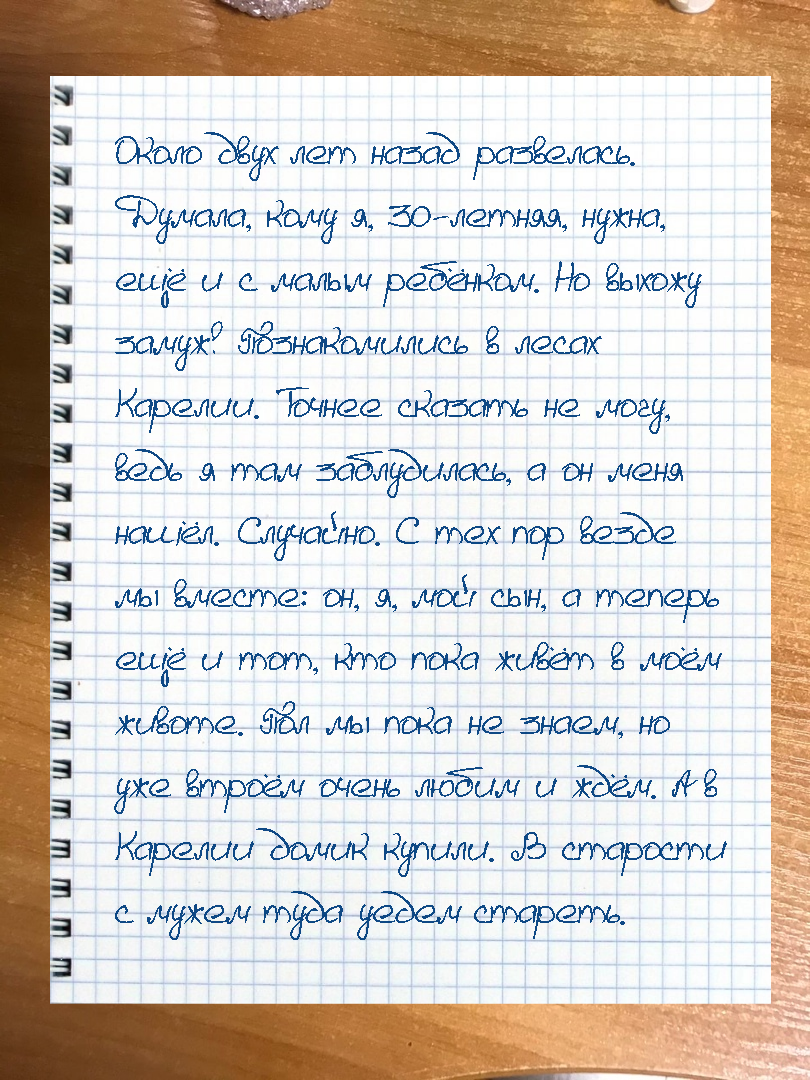 Около двух лет назад развелась.
Думала, кому я, 30-летняя, нужна,
ещё и с малым ребёнком. Но выхожу
замуж! Познакомились в лесах
Карелии. Точнее сказать не могу,
ведь я там заблудилась, а он меня
нашёл. Случайно. С тех пор везде
мы вместе: он, я, мой сын, а теперь
ещё и тот, кто пока живёт в моём
животе. Пол мы пока не знаем, но
уже втроём очень любим и ждём. А в
Карелии домик купили. В старости
с мужем туда уедем стареть.